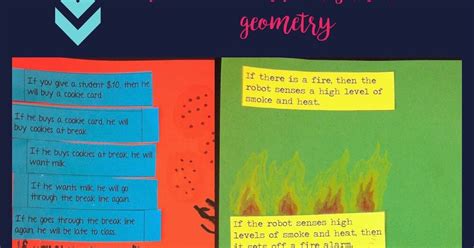 geometry
If you give a student $10, then he
will buy a cookie card.
If he buys a cookie card, he will
buy cookies at break.
If he buys cookies at break, he will
want milk.
If he wants milk, he will go
through the break line again.
If he goes through the break line
again, he will be late to class.
If there is a fire, then the
robot senses a high level of
smoke and heat.
If the robot senses high
levels of smoke and heat, then
it sets off a fire alarm.